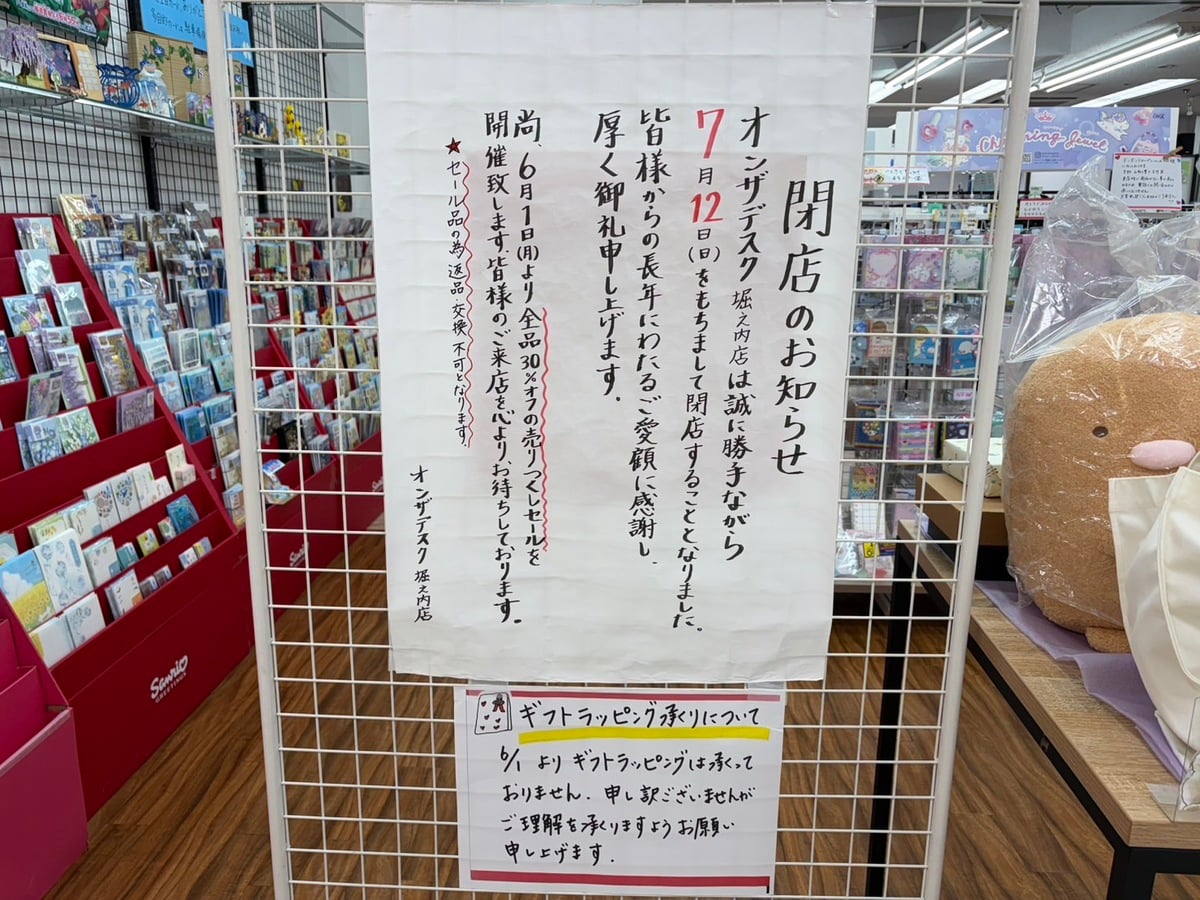 閉店のお知らせ
オンザデスク 堀之内店は誠に勝手ながら
7月12日(日)をもちまして閉店することとなりました。
皆様からの長年にわたるご愛顧に感謝し、
厚く御礼申し上げます。
尚、6月1日(月)より全品30%オフの売りつくしセールを
開催致します。皆様のご来店を心よりお待ちしております。
★セール品の為返品・交換不可となります。
オンザデスク 堀之内店
ギフトラッピング承くりについて
6/1 より ギフトラッピングは承くって
おりません. 申し訳ございませんが
ご理解を承くりますようお願い
申し上げます.
Sanrio
GREETINGS
Charming Jewel